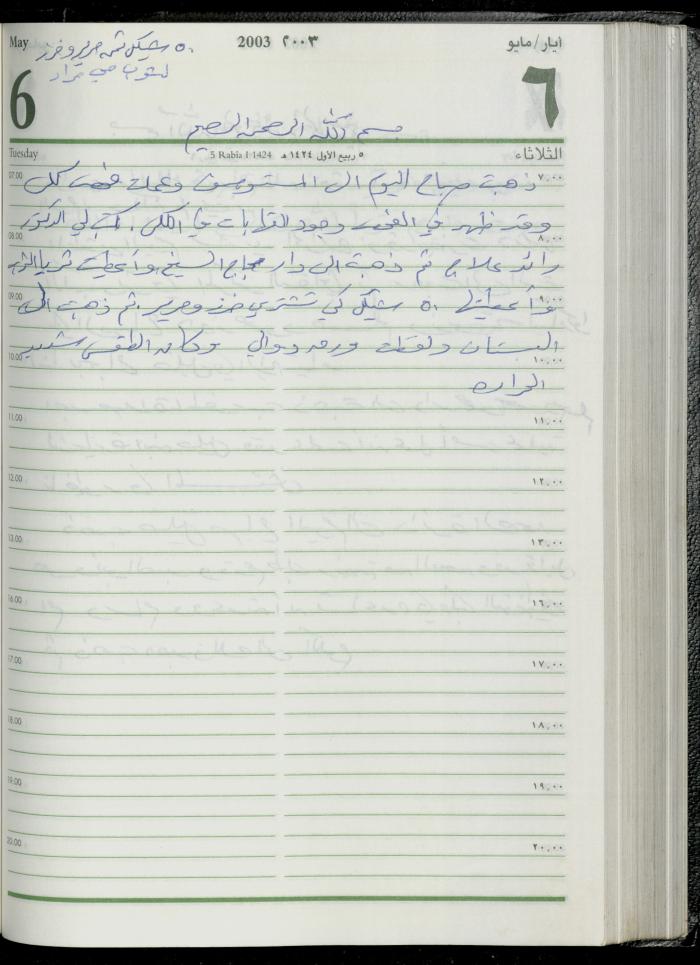 May 2003 ٢٠٠٣ أيار/مايو
٥٠ شيكل ثمن حرير وخرز
لثوب مي مراد
6 ٦
بسم الله الرحمن الرحيم
Tuesday 5 Rabia I 1424 ٥ ربيع الأول ١٤٢٤ هـ الثلاثاء
07.00 ٧,٠٠
ذهبت صباح اليوم الى المستوصف وعملت فحص كلى
وقد ظهر في الفحص وجود التهابات في الكلى. كتب لي الدكتور
08.00 ٨,٠٠
رائد علاج ثم ذهبت الى دار حجاج الشيخ وأعطيت ثريا الثوب
09.00 ٩,٠٠
وأعطيتها ٥٠ شيكل كي تشتري خرز وحرير. ثم ذهبت الى
البستان ولقطت ورق دوالي وكان الطقس شديد
10.00 ١٠,٠٠
الحرارة
11.00 ١١,٠٠
12.00 ١٢,٠٠
13.00 ١٣,٠٠
16.00 ١٦,٠٠
17.00 ١٧,٠٠
18.00 ١٨,٠٠
19.00 ١٩,٠٠
20.00 ٢٠,٠٠